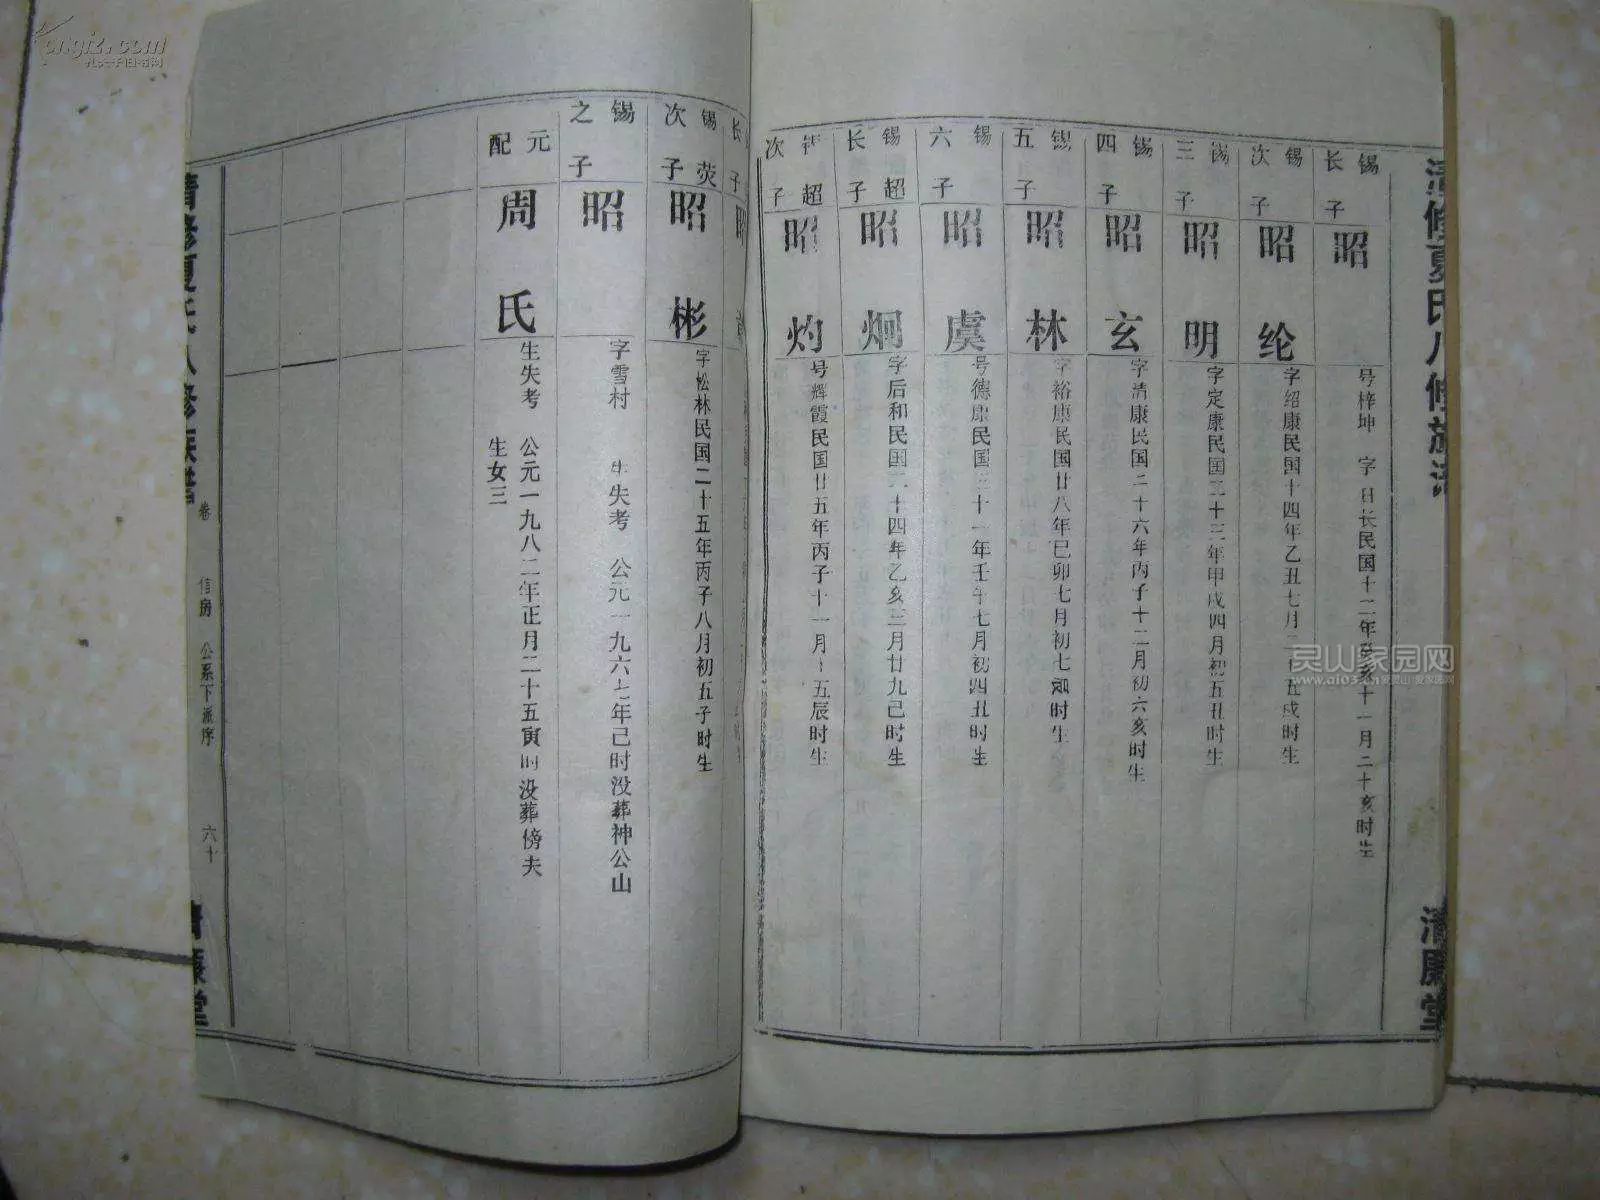 清修夏氏八修族谱
清廉堂
锡
长子
昭
号梓坤 字日长民国十二年癸亥十一月二十亥时生
锡
次子
昭纶
字绍康民国十四年乙丑七月二十五戌时生
锡
三子
昭明
字定康民国二十三年甲戌四月初五丑时生
锡
四子
昭玄
字清康民国二十六年丙子十二月初六亥时生
锡
五子
昭林
字裕康民国廿八年已卯七月初七卯时生
锡
六子
昭虞
号德康民国三十一年壬午七月初四丑时生
锡超
长子
昭炯
字后和民国二十四年乙亥三月廿九己时生
锡超
次子
昭灼
号辉霞民国廿五年丙子十一月十五辰时生
长子
昭
锡荧
次子
昭彬
字松林民国二十五年丙子八月初五子时生
锡
之子
昭
字雪村 生失考 公元一九六七年己时没葬神公山
元配
周氏
生失考 公元一九八二年正月二十五寅时没葬傍夫
生女三
清修夏氏八修族谱
卷
信房
公系下派序
六十
清廉堂
灵山家园网
www.qi03.cn 爱灵山·爱家园网
Kongfz.com
孔夫子旧书网